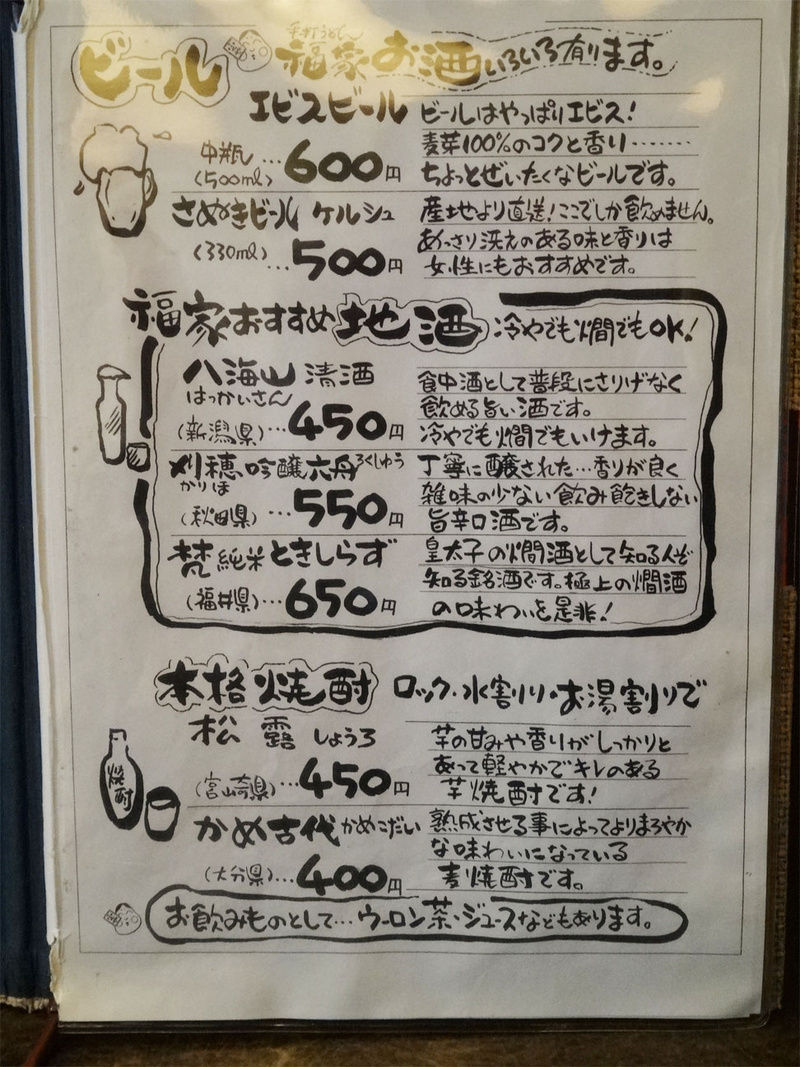 ビール
手打うどん
福家 お酒いろいろ有ります。
エビスビール
中瓶…600円
(500ml)
ビールはやっぱりエビス!
麦芽100%のコクと香り………
ちょっとぜいたくなビールです。
さぬきビール ケルシュ
(330ml)
…500円
産地より直送!ここでしか飲めません。
あっさり洗えのある味と香りは
女性にもおすすめです。
福家おすすめ地酒 冷やでも燗でもOK!
八海山 清酒
はっかいさん
(新潟県)…450円
食中酒として普段にさりげなく
飲める旨い酒です。
冷やでも燗でもいけます。
刈穂吟醸六舟ろくしゅう
かりほ
(秋田県)…550円
丁寧に醸された…香りが良く
雑味の少ない飲み飽きしない
旨辛口酒です。
梵 純米 ときしらず
(福井県)…650円
皇太子の燗酒として知る人ぞ
知る銘酒です。極上の燗酒
の味わいを是非!
本格焼酎 ロック・水割り・お湯割りで
焼酎
松露 しょうろ
(宮崎県)…450円
芋の甘みや香りがしっかりと
あって軽やかでキレのある
芋焼酎です!
かめ古代かめこだい
(大分県)…400円
熟成させる事によってよりまろやか
な味わいになっている
麦焼酎です。
お飲みものとして…ウーロン茶・ジュースなどもあります。